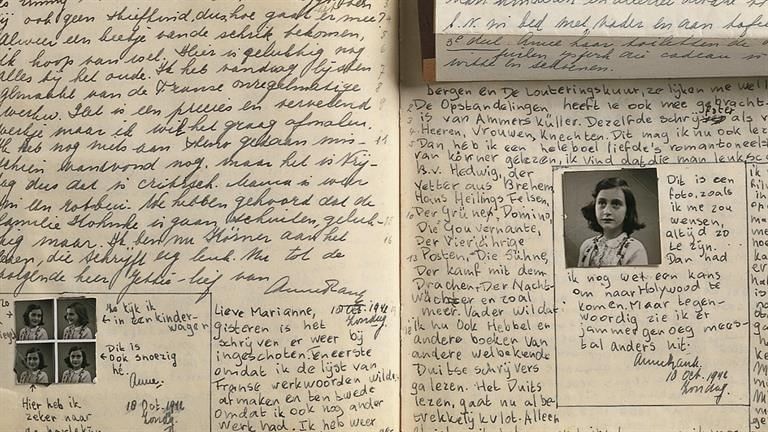 ook geen stiefkind, dus hoe gaat er mee
Alweer een beetje van de schrik bekomen,
ik hoop van wel. Hier is gelukkig nog
alles bij het oude. Ik heb vandaag lijsten
gemaakt van de Franse onregelmatige
werkw. Het is een precies en vervelend
werkje maar ik wil het graag afmaken.
Ik heb nog niets aan steno gedaan mis-
schien vanavond nog, maar het is Vrij-
dag dus dat is critisch. Mama is weer
in een We hebben gehoord dat de
familie is gaan schuilen, geluk-
kig maar. Ik ben nu Körner aan het
lezen, die schrijft erg leuk. Nu tot de
volgende keer Jettie-lief van
Anne Frank
Zo kijk ik
in een kinder-
wagen
Dit is
ook snoezig
hè.
Anne.
Hier heb ik
zeker naar
18 Oct. 1942
Zondag.
18 Oct. 1942
Lieve Marianne, Zondag.
gisteren is het
schrijven er weer bij
ingeschoten. Eneerste
omdat ik de lijst van
Franse werkwoorden wilde
afmaken en ten twede
omdat ik ook nog ander
werk had. Ik heb weer
in bed met vader en aan
3e deel. Anne
cadeau
bergen en De Louteringskuur, ze lijken me wel
De Opstandelingen heeft ie ook mee gebracht
is van Ammers Küller. Dezelfde schrijfster als v
Heeren, Vrouwen, Knechten. Dit mag ik nu ook lez
Dan heb ik een heleboel liefde's romantoneels
van körner gelezen, ik vind dat die man leuk sc
B.v. Hedwig, der
Vetter aus Brehem
Hans Heilings Felsen,
Der Grüne, Domino,
Die Gouvernante,
Der Vierjährige
Posten, Die Sühne,
Der kamf mit dem
Drachen, Der Nacht-
wächter en zoal
meer. Vader wil dat
ik nu ook Hebbel en
andere boeken van
andere welbekende
Duitse schrijvers
ga lezen. Het Duits
lezen, gaat nu al be-
trekkelijk vlot. Alleen
Dit is een
foto, zoals
ik me zou
wensen,
altijd zo
te zijn.
Dan had
ik nog wel een kans
om naar Holywood te
komen. Maar tegen-
woordig zie ik er
jammer genoeg mees-
tal anders uit.
Anne Frank.
18 Oct. 1942
Zondag.